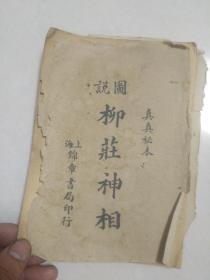 真真秘本
圖說
柳莊神相
上海
錦章書局印行